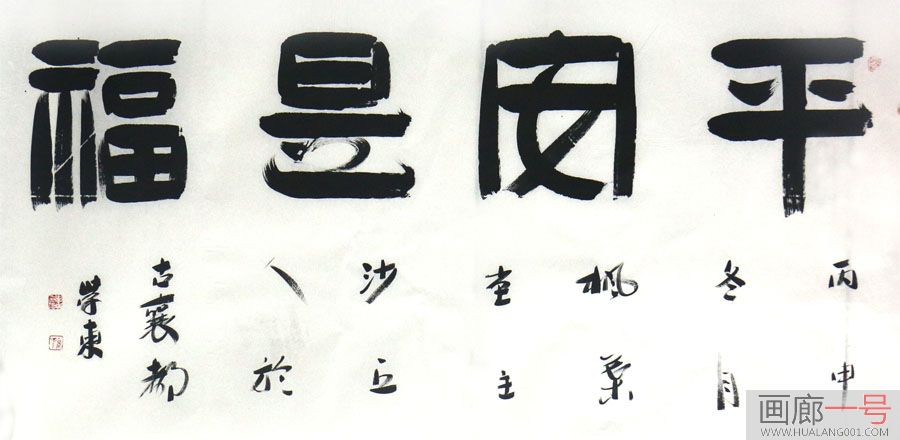 平安是福
丙申
冬月
枫葉
堂主
沙丘
人於
古襄都
学東
画廊一号
WWW.HUALANG001.COM